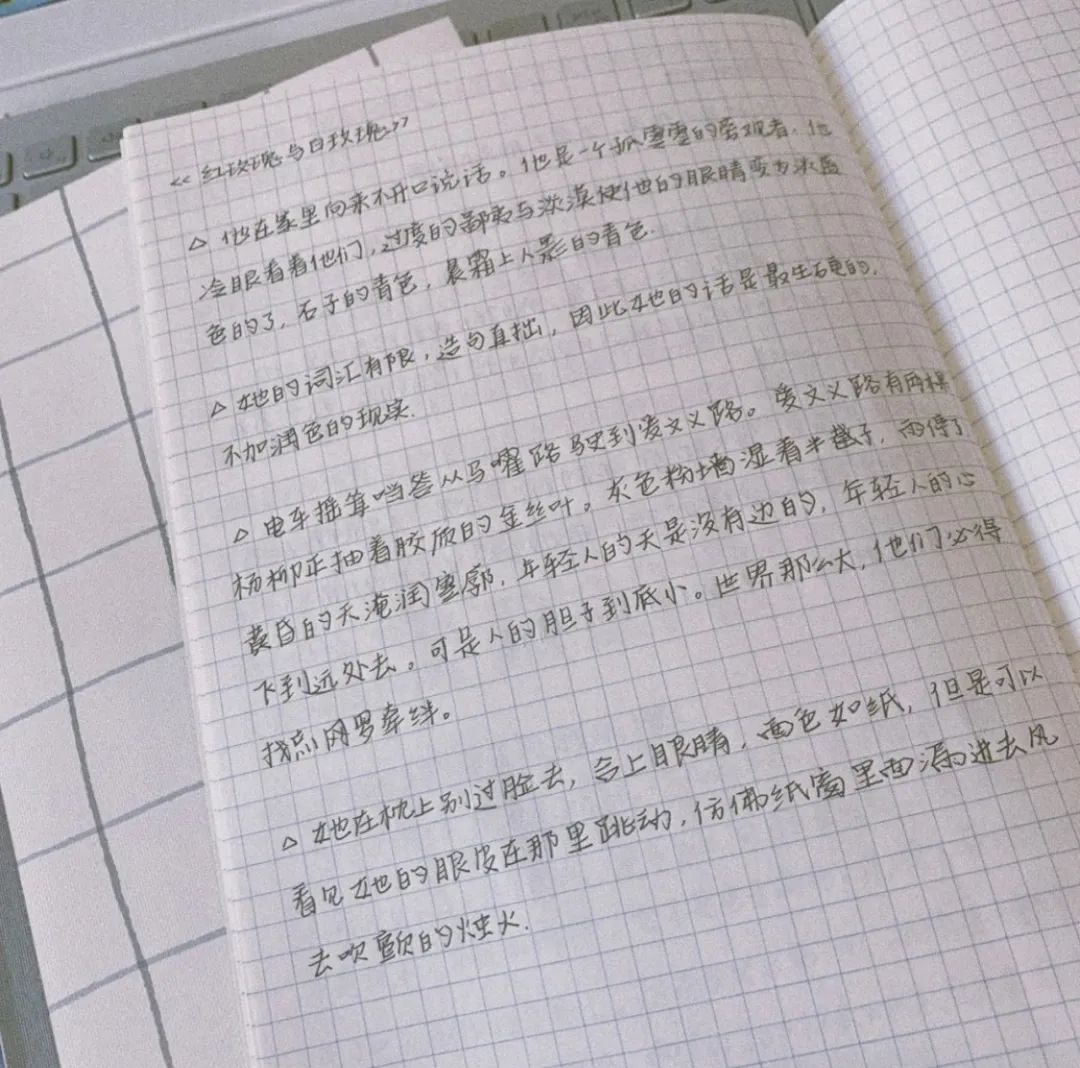 《红玫瑰与白玫瑰》
△ 他在家里向来不开口说话。他是一个孤零零的旁观者.他
冷眼看着他们,过度的鄙夷与淡漠使他的眼睛变为淡蓝
色的了,石子的青色,晨霜上人影的青色.
△ 她的词汇有限,造句直拙,因此她的话是最生硬的,
不加润色的现实.
△ 电车摇耸哨答从马霍路驶到爱文义路。爱文义路有两棵
杨柳正抽着胶质的金丝叶。灰色粉墙湿着半截子,雨停了
黄昏的天淹润寥廓,年轻人的天是没有边的,年轻人的心
飞到远处去。可是人的胆子到底小。世界那么大,他们必得
找点网罗牵绊。
△ 她在枕上别过脸去,合上眼睛,面色如纸,但是可以
看见她的眼皮在那里跳动,仿佛纸窗里面漏进去风
去吹颤的烛火.